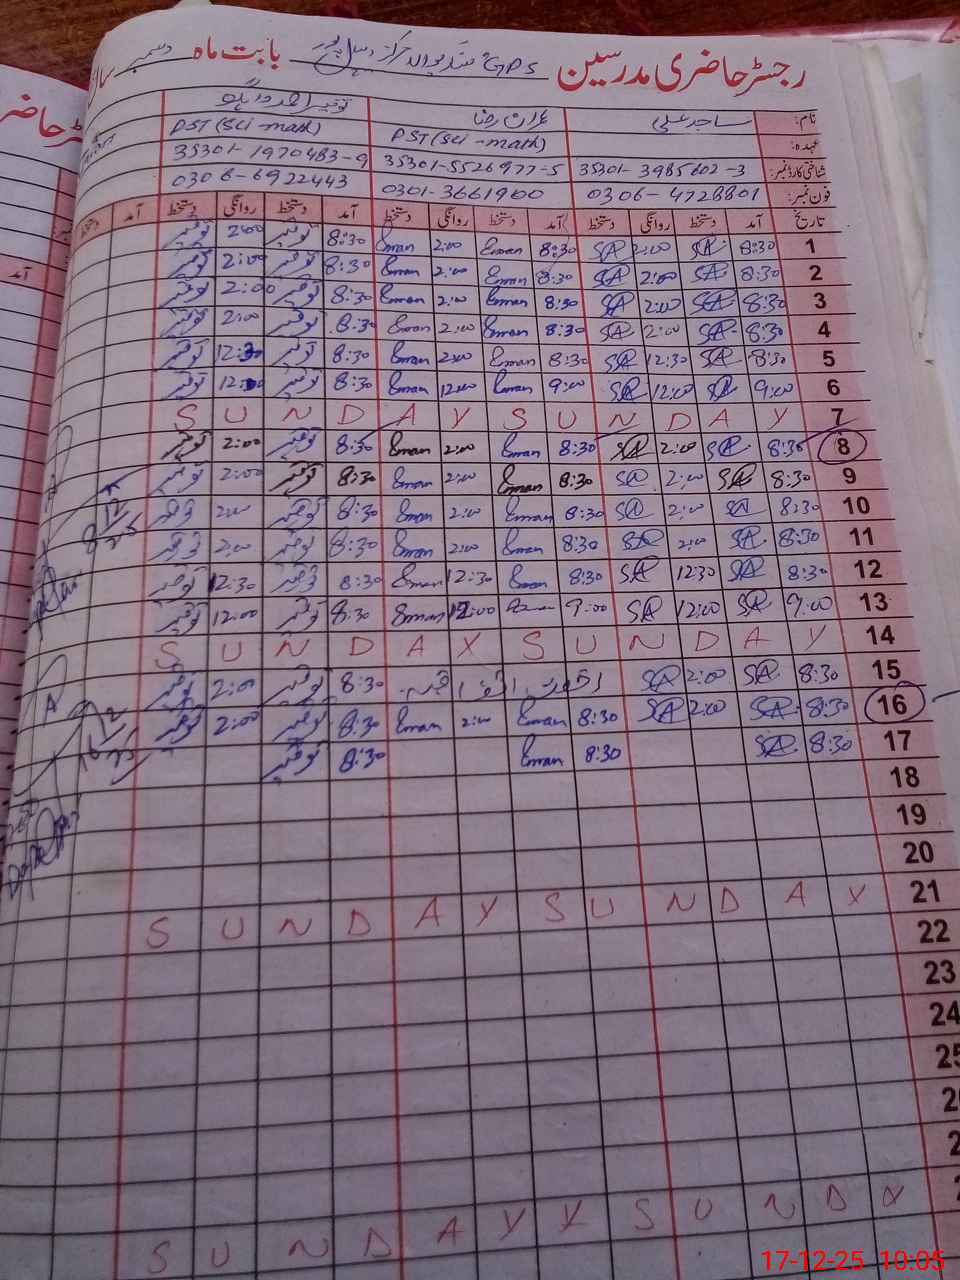 رجسٹر حاضری مدرسین GPS بابت ماہ دسمبر
نام: ساجد علی عمران رضا توقیر احمد
عہدہ: PST (Sci-math) PST (Sci-math)
شناختی کارڈ نمبر: 35301-3985602-3 35301-5526977-5 35301-1970483-9
فون نمبر: 0306-4728801 0301-3661900 0306-6922443
تاریخ آمد دستخط روانگی دستخط آمد دستخط روانگی دستخط آمد دستخط روانگی دستخط آمد دستخط
1 8:30 SA 2:00 SA 8:30 Eman 2:00 Eman 8:30 توقیر 2:00 توقیر
2 8:30 SA 2:00 SA 8:30 Eman 2:00 Eman 8:30 توقیر 2:00 توقیر
3 8:30 SA 2:00 SA 8:30 Eman 2:00 Eman 8:30 توقیر 2:00 توقیر
4 8:30 SA 2:00 SA 8:30 Eman 2:00 Eman 8:30 توقیر 2:00 توقیر
5 8:30 SA 12:30 SA 8:30 Eman 2:00 Eman 8:30 توقیر 12:30 توقیر
6 9:00 SA 12:00 SA 9:00 Eman 12:00 Eman 8:30 توقیر 12:00 توقیر
7 SUNDAY SUNDAY
8 8:30 SA 2:00 SA 8:30 Eman 2:00 Eman 8:30 توقیر 2:00 توقیر
9 8:30 SA 2:00 SA 8:30 Eman 2:00 Eman 8:30 توقیر 2:00 توقیر
10 8:30 SA 2:00 SA 8:30 Eman 2:00 Eman 8:30 توقیر 2:00 توقیر
11 8:30 SA 2:00 SA 8:30 Eman 2:00 Eman 8:30 توقیر 2:00 توقیر
12 8:30 SA 12:30 SA 8:30 Eman 12:30 Eman 8:30 توقیر 12:30 توقیر
13 9:00 SA 12:00 SA 9:00 Eman 12:00 Eman 8:30 توقیر 12:00 توقیر
14 SUNDAY SUNDAY
15 8:30 SA 2:00 SA رخصت اتفاقیہ 8:30 توقیر 2:00 توقیر
16 8:30 SA 2:00 SA 8:30 Eman 2:00 Eman 8:30 توقیر 2:00 توقیر
17 8:30 SA 8:30 Eman 8:30 توقیر
18
19
20
21 SUNDAY SUNDAY
22
23
24
25
SUNDAY SUNDAY
17-12-25 10:05